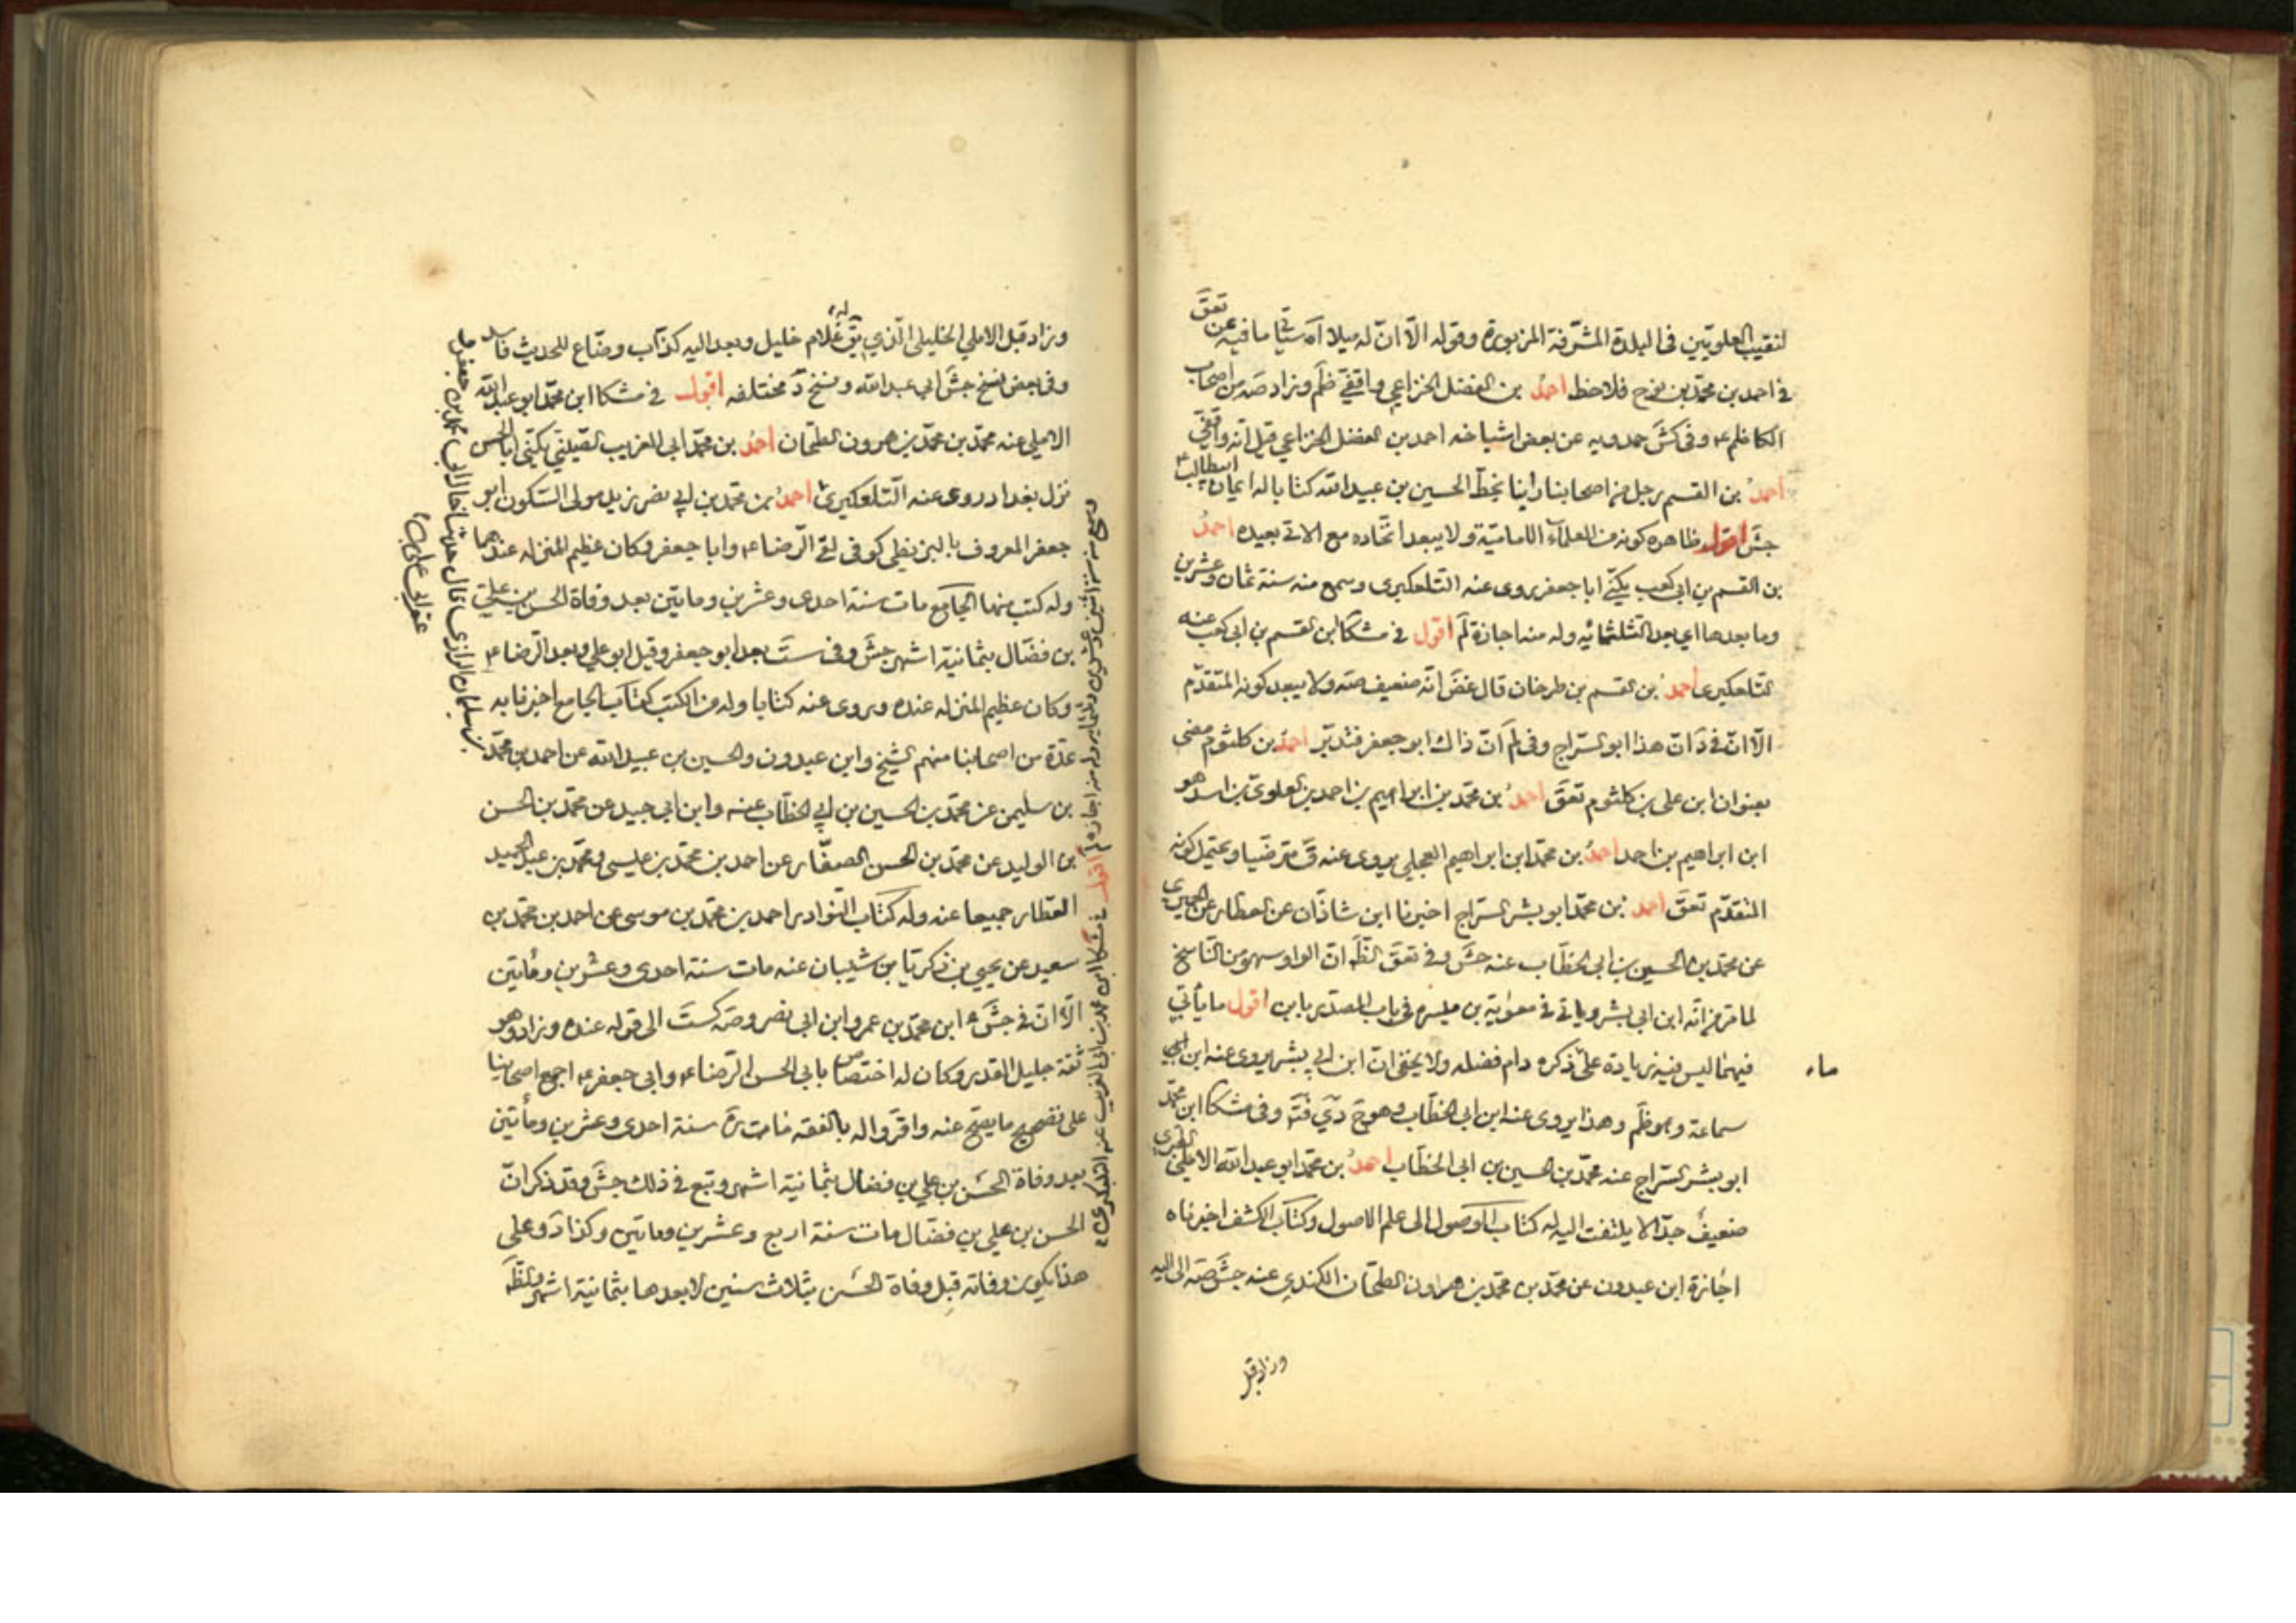 لنقيب العلويّين فى البلدة المشرّفة المزبورة وقوله الّا انّ له ميلا آه سيأتي ما فيه عن تعق
في احمد بن محمّد بن نوح فلاحظ احمد بن الفضل الخزاعي واقفيّ ظم وزاد صه من اصحاب
الكاظم ع وفى كش حمدويه عن بعض اشياخه احمد بن الفضل الخزاعي قيل انه واقفيّ
احمد بن القسم رجل من اصحابنا راينا بخطّ الحسين بن عبيد الله كتابا له ايمان ابيطالب ع
جش اقول ظاهره كونه من العلمآء الاماميّة ولا يبعد اتّحاده مع الاتي بعيده احمد
بن القسم بن ابى كعب يكنّى ابا جعفر روى عنه التلعكبرى وسمع منه سنة ثمان وعشرين
وما بعدها اى بعد الثلثمائه وله منه اجازة لم اقول في مشكا ابن القسم بن ابى كعب عنه
التلعكبرى احمد بن القسم بن طرخان قال غض انّه ضعيف صه ولا يبعد كونه المتقدّم
الّا انّ في د انّ هذا ابو السّراج وفى لم انّ ذاك ابو جعفر فتدبّر احمد بن كلثوم مضى
بعنوان ابن على بن كلثوم تعق احمد بن محمّد بن ابراهيم بن احمد بن العلوى بن اسد هو
ابن ابراهيم بن احمد احمد بن محمّد ابن ابراهيم العجلي يروى عنه ق مترضيا ويحتمل كونه
المتقدّم تعق احمد بن محمّد ابو بشر السّراج اخبرنا ابن شاذان عن العطار عن الحميرى
عن محمّد بن الحسين بن ابى الخطّاب عنه جش وفي تعق الظّ انّ الواو سهو من النّاسخ
لما مرّ من انّه ابن ابى بشر وياتى في معوية بن ميسره فى باب المصدّر بابن اقول ما يأتي
فيهما ليس فيه زيادة على ما ذكره دام فضله ولا يخفى انّ ابن ابى بشر يروى عنه ابن
سماعة وهو ظم وهذا يروى عنه ابن ابى الخطّاب وهو ج دي فتد وفى مشكا ابن محمّد
ابو بشر السّراج عنه محمّد بن الحسين بن ابى الخطّاب احمد بن محمّد ابو عبد الله الاملي الطبرى
ضعيف جدّا لا يلتفت اليه له كتاب الوصول الى علم الاصول وكتاب الكشف اخبرناه
اجازة ابن عبدون عن محمّد بن محمّد بن هرون الطحّان الكندي عنه جش صه الى اليه
وزاد قبل
وزاد قبل الاملي الخليلى الّذي يق له غلام خليل وبعد اليه كذّاب وضّاع للحديث فاسد
وفى بعض نسخ جش ابي عبد الله ونسخ د مختلفه اقول في مشكا ابن محمّد ابو عبد الله
الاملي عنه محمّد بن محمّد بن هرون الطحّان احمد بن محمّد ابى الغريب الضبى يكنّى ابا الحسن
نزل بغداد روى عنه التلعكبرى احمد بن محمّد بن ابي نصر زيد مولى السّكون ابو
جعفر المعروف بالبزنطي كوفى لقى الرّضا ع وابا جعفر وكان عظيم المنزله عندهما
وله كتب منها الجامع مات سنة احدى وعشرين ومايتين بعد وفاة الحسن بن علي
بن فضّال بثمانية اشهر جش وفى ست بعد ابو جعفر وقيل ابو علي وبعد الرّضا ع
وكان عظيم المنزله عنده وروى عنه كتابا وله من الكتب كتاب الجامع اخبرنا به
عدّة من اصحابنا منهم الشيخ وابن عبدون والحسين بن عبيد الله عن احمد بن محمّد
بن سليمن عن محمّد بن الحسين بن ابي الخطّاب عنه وابن ابى جيد عن محمّد بن الحسن
بن الوليد عن محمّد بن الحسن الصفّار عن احمد بن محمّد بن عيسى ومحمّد بن عبد الحميد
العطار جميعا عنه وله كتاب النوادر احمد بن محمّد بن موسى عن احمد بن محمّد بن
سعيد عن يحيى بن زكريّا بن شيبان عنه مات سنة احدى وعشرين ومأتين
الّا انّ في جش ابن محمّد بن عمرو ابن ابى نصر وصه كست الى قوله عنده وزاد وهو
ثقة جليل القدر وكان له اختصاص بابى الحسن الرّضا ع وابى جعفر ع اجمع اصحابنا
على تصحيح ما يصحّ عنه واقرّوا له بالفقه مات ره سنة احدى وعشرين ومأتين
بعد وفاة الحسن بن علي بن فضال بثمانية اشهر وتبع في ذلك جش وقد ذكر انّ
الحسن بن علي بن فضّال مات سنة اربع وعشرين ومايتين وكذا د وعلى
هذا يكون وفاته قبل وفاة الحسن بثلاث سنين لا بعدها بثمانية اشهر والظّ
وسمع منه سنة اثنين وعشرين وثلثمايه وله منه اجازه لم اقول في مشكا ابن محمد بن ابى الغريب عنه التلعكبرى
بن سليمان الرازى قال حدثنا خال ابى محمد بن جعفر